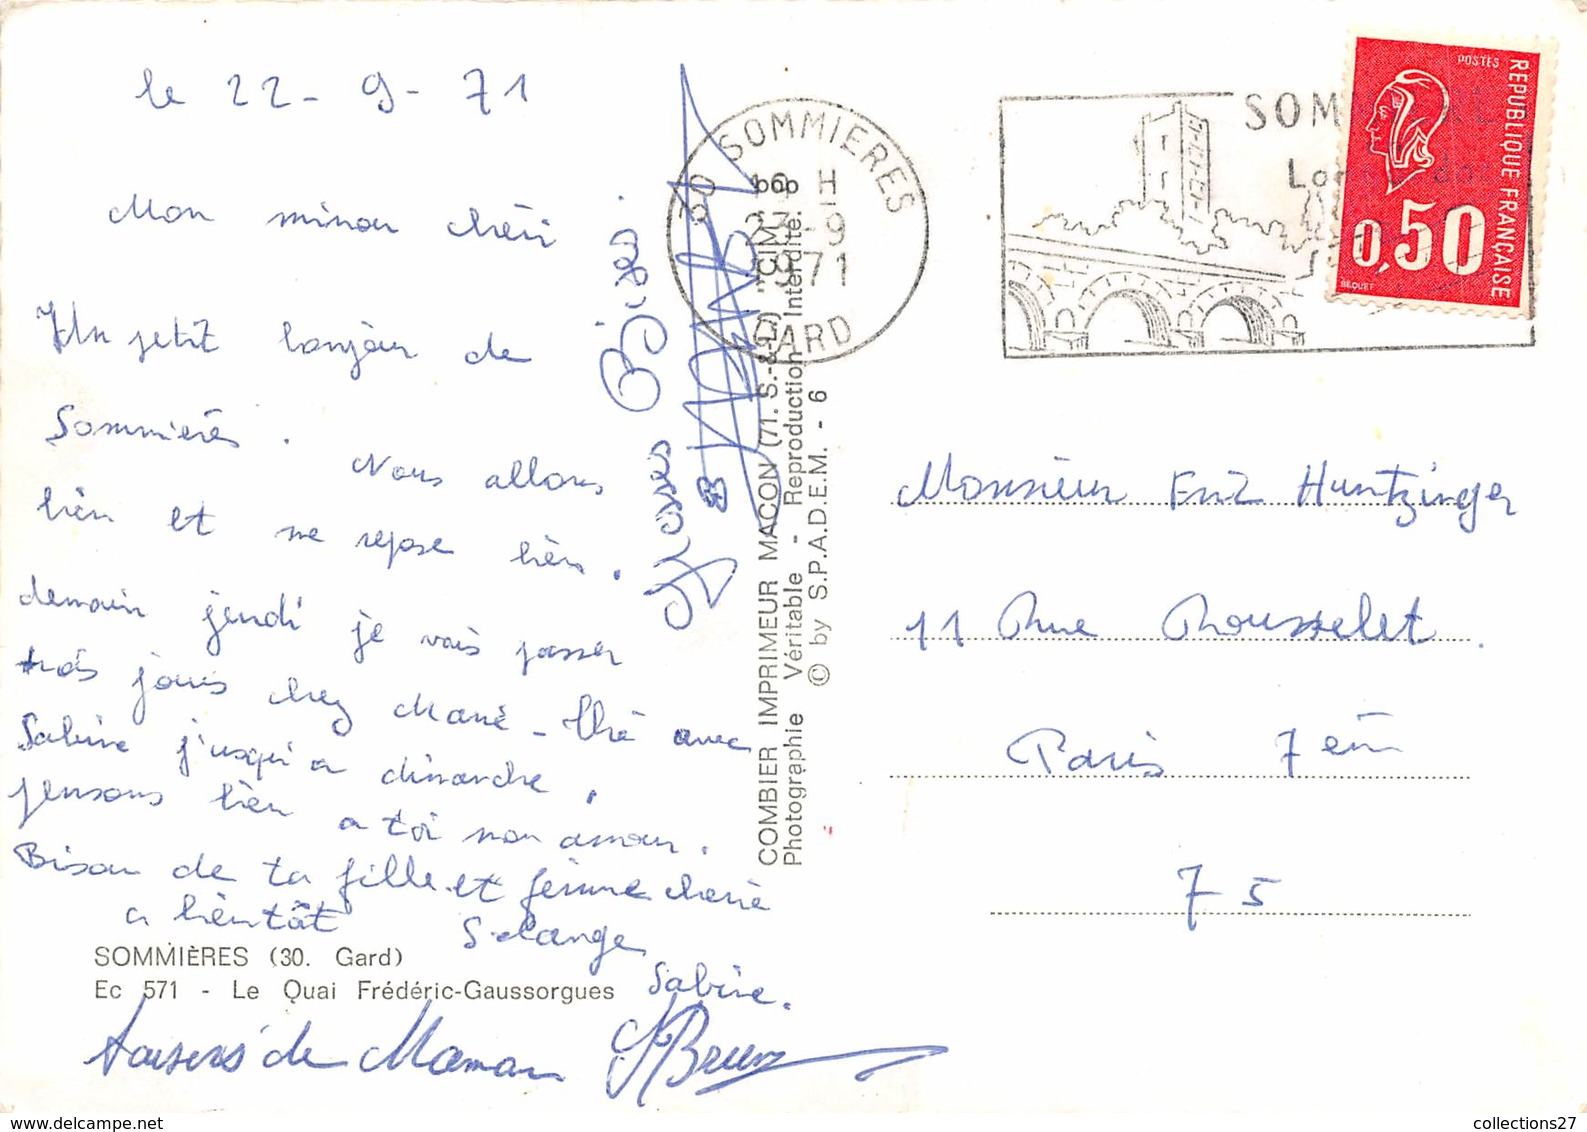 le 22-9-71
Mon minou chéri
Un petit bonjour de
Sommières. Nous allons
bien et me repose bien.
demain jeudi je vais passer
trois jours chez Mané-Thé avec
Sabine j'usqu'a dimanche.
pensons bien a toi mon amour.
Bisou de ta fille et femme cherie
a bientôt Solange
Sabine.
SOMMIÈRES (30. Gard)
Ec 571 - Le Quai Frédéric-Gaussorgues
Baisers de Maman
Grosses Bises
COMBIER IMPRIMEUR MACON (71. S.-&-L.) "CIM"
Photographie Véritable - Reproduction Interdite.
© by S.P.A.D.E.M. - 6
30 SOMMIERES
H
9
1971
GARD
SOM
POSTES
REPUBLIQUE FRANÇAISE
0,50
BEQUET
Monsieur Huntzinger
11 Rue Rousselet.
Paris 7 èm
75
collections27